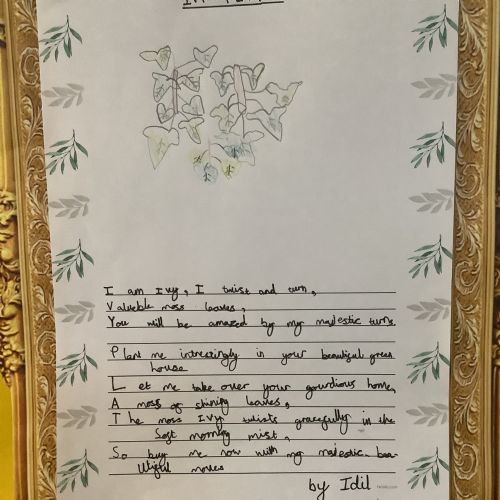 I am Ivy, I twist and turn,
Valuable moss leaves,
You will be amazed by my majestic turns
Plant me intrestingly in your beautiful green
house
Let me take over your gourdious home,
A moss of shining leaves,
The moss Ivy twists gracefully in the
soft morning mist,
So buy me now with my majestic bea-
utiful moves
by Idil